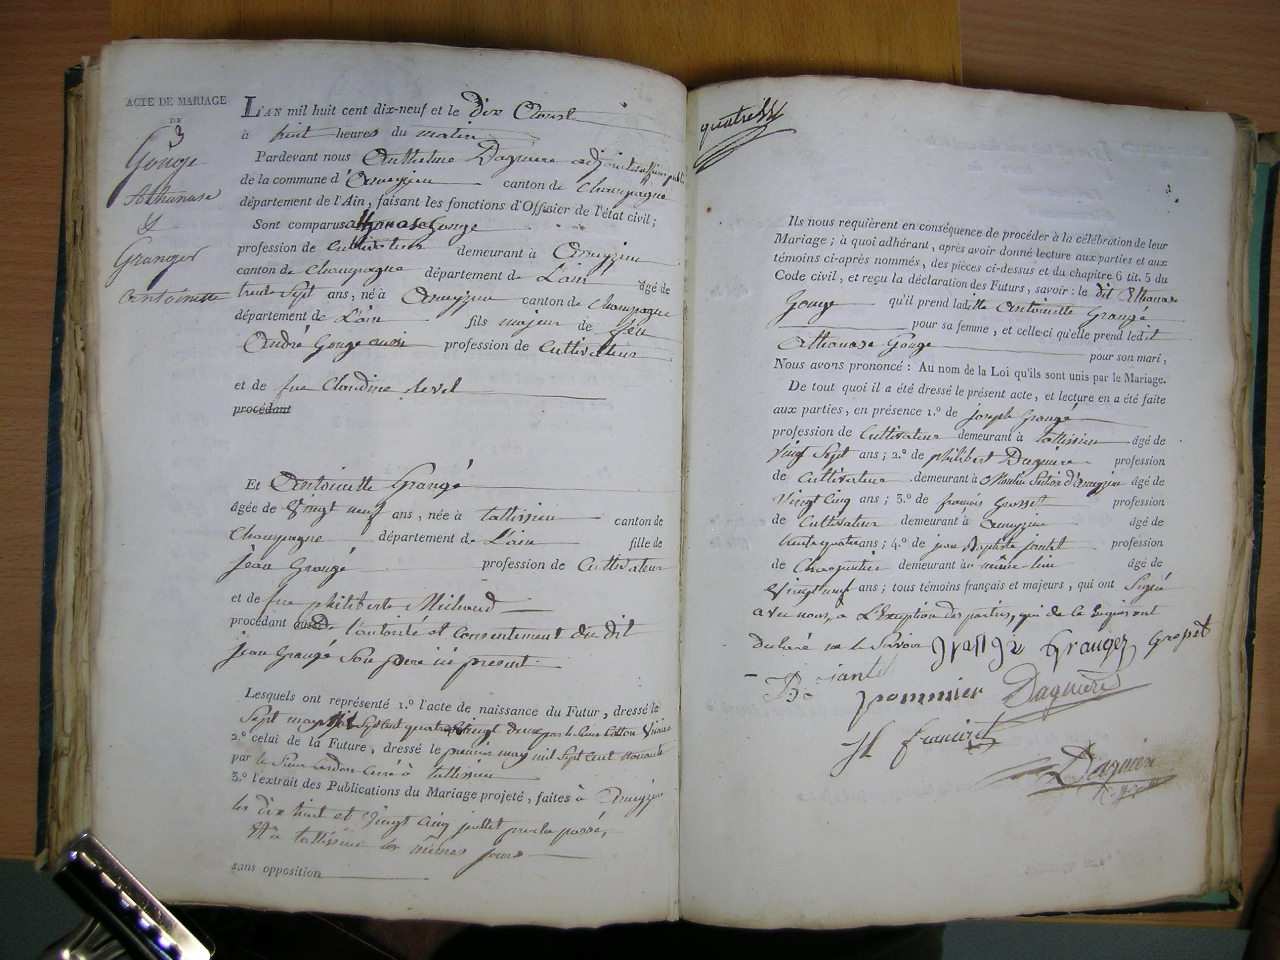 ACTE DE MARIAGE
DE
3
Gouge
Athanase
&
Granger
Antoinette
L'AN mil huit cent dix-neuf et le Dix Aoust
à huit heures du matin
Pardevant nous Anthelme Dagniere adjoint
de la commune d'Ameyzieu canton de Champagne
département de l'Ain, faisant les fonctions d'Officier de l'état civil;
Sont comparus athanase Gouge
profession de Cultivateur demeurant à Ameyzieu
canton de Champagne département de L'ain âgé de
trente Sept ans, né à Ameyzieu canton de Champagne
département de L'ain fils majeur de feu
André Gouge profession de Cultivateur
et de fue Claudine
procédant
Et Antoinette Grangé
âgée de Vingt neuf ans, née à tallissieu canton de
Champagne département de L'ain fille de
jean Grangé profession de Cultivateur
et de fue philiberte Michaud
procédant l'autorité et Consentement du dit
jean Grangé Son pere ici présent
Lesquels ont représenté 1.º l'acte de naissance du Futur, dressé le
Sept may mil Sept cent quatre vingt deux par le Sieur
2.º celui de la Future, dressé le premier may mil Sept cent nonante
par le Sieur Curé à tallissieu
3.º l'extrait des Publications du Mariage projeté, faites à Ameyzieu
les dix huit et Vingt Cinq juillet proche passé,
& à tallissieu les mêmes jours
sans opposition
Ils nous requièrent en conséquence de procéder à la célébration de leur
Mariage; à quoi adhérant, après avoir donné lecture aux parties et aux
témoins ci-après nommés, des pièces ci-dessus et du chapitre 6 tit. 5 du
Code civil, et reçu la déclaration des Futurs, savoir: le dit Athanase
Gouge qu'il prend ladite Antoinette Grangé
pour sa femme, et celle-ci qu'elle prend ledit
Athanase Gouge pour son mari,
Nous avons prononcé: Au nom de la Loi qu'ils sont unis par le Mariage.
De tout quoi il a été dressé le présent acte, et lecture en a été faite
aux parties, en présence 1.º de joseph Grangé
profession de Cultivateur demeurant à tallissieu âgé de
Vingt Sept ans; 2.º de philibert Dagniere profession
de Cultivateur demeurant à d'Ameyzieu âgé de
Vingt Cinq ans; 3.º de françois profession
de Cultivateur demeurant à Ameyzieu âgé de
trente quatre ans; 4.º de jean Baptiste profession
de Charpentier demeurant au même lieu âgé de
Vingt neuf ans; tous témoins français et majeurs, qui ont Signé
avec nous, a L'Exception des parties, qui de ce Enquis ont
Declaré ne le Savoir Granger
pommier Dagniere
Dagniere